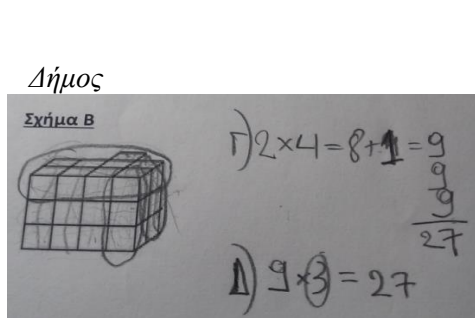 Δήμος
Σχήμα Β
Γ) 2×4=8+1=9
9
9
27
Δ) 9×3=27